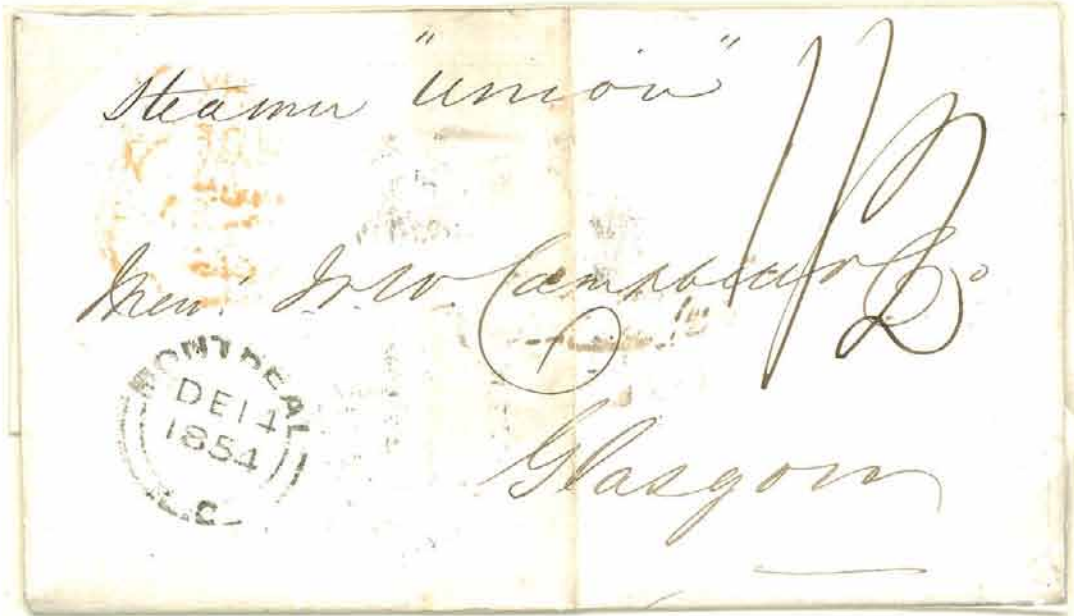 Steamer "Union"
Messrs J & W Campbell & Co
1/2
Glasgow
MONTREAL
DE 14
1854
L.C.